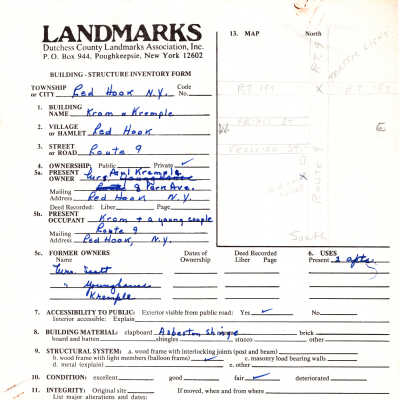 LANDMARKS
Dutchess County Landmarks Association, Inc.
P. O. Box 944, Poughkeepsie, New York 12602
BUILDING - STRUCTURE INVENTORY FORM
TOWNSHIP or CITY Red Hook N.Y. Code No.
1. BUILDING NAME Kram & Kremple
2. VILLAGE or HAMLET Red Hook
3. STREET or ROAD Route 9
4. OWNERSHIP: Public Private ✓
5a. PRESENT OWNER Mrs. Kremple
Mailing Address 8 Park Ave.
Red Hook N.Y.
Deed Recorded: Liber Page
5b. PRESENT OCCUPANT Kram + a young couple
Mailing Address Route 9
Red Hook, N.Y.
5c. FORMER OWNERS Name Dates of Ownership Deed Recorded Liber Page 6. USES Present 2 apts.
Mrs. Scott
" Younghanse
Kremple
7. ACCESSIBILITY TO PUBLIC: Exterior visible from public road: Yes ✓ No
Interior accessible: Explain
8. BUILDING MATERIAL: clapboard Asbestos shinge brick
board and batten shingles stucco other
9. STRUCTURAL SYSTEM: a. wood frame with interlocking joints (post and beam)
b. wood frame with light members (balloon frame) ✓ c. masonry load bearing walls
d. metal (explain) e. other
10. CONDITION: excellent good fair ✓ deteriorated
11. INTEGRITY: Original site If moved, when and from where
List major alterations and dates:
13. MAP North
RT 9
TRAFFIC LIGHT
RT 199
RT 199
X
PRINCE ST.
W
E
X
Route 9
South